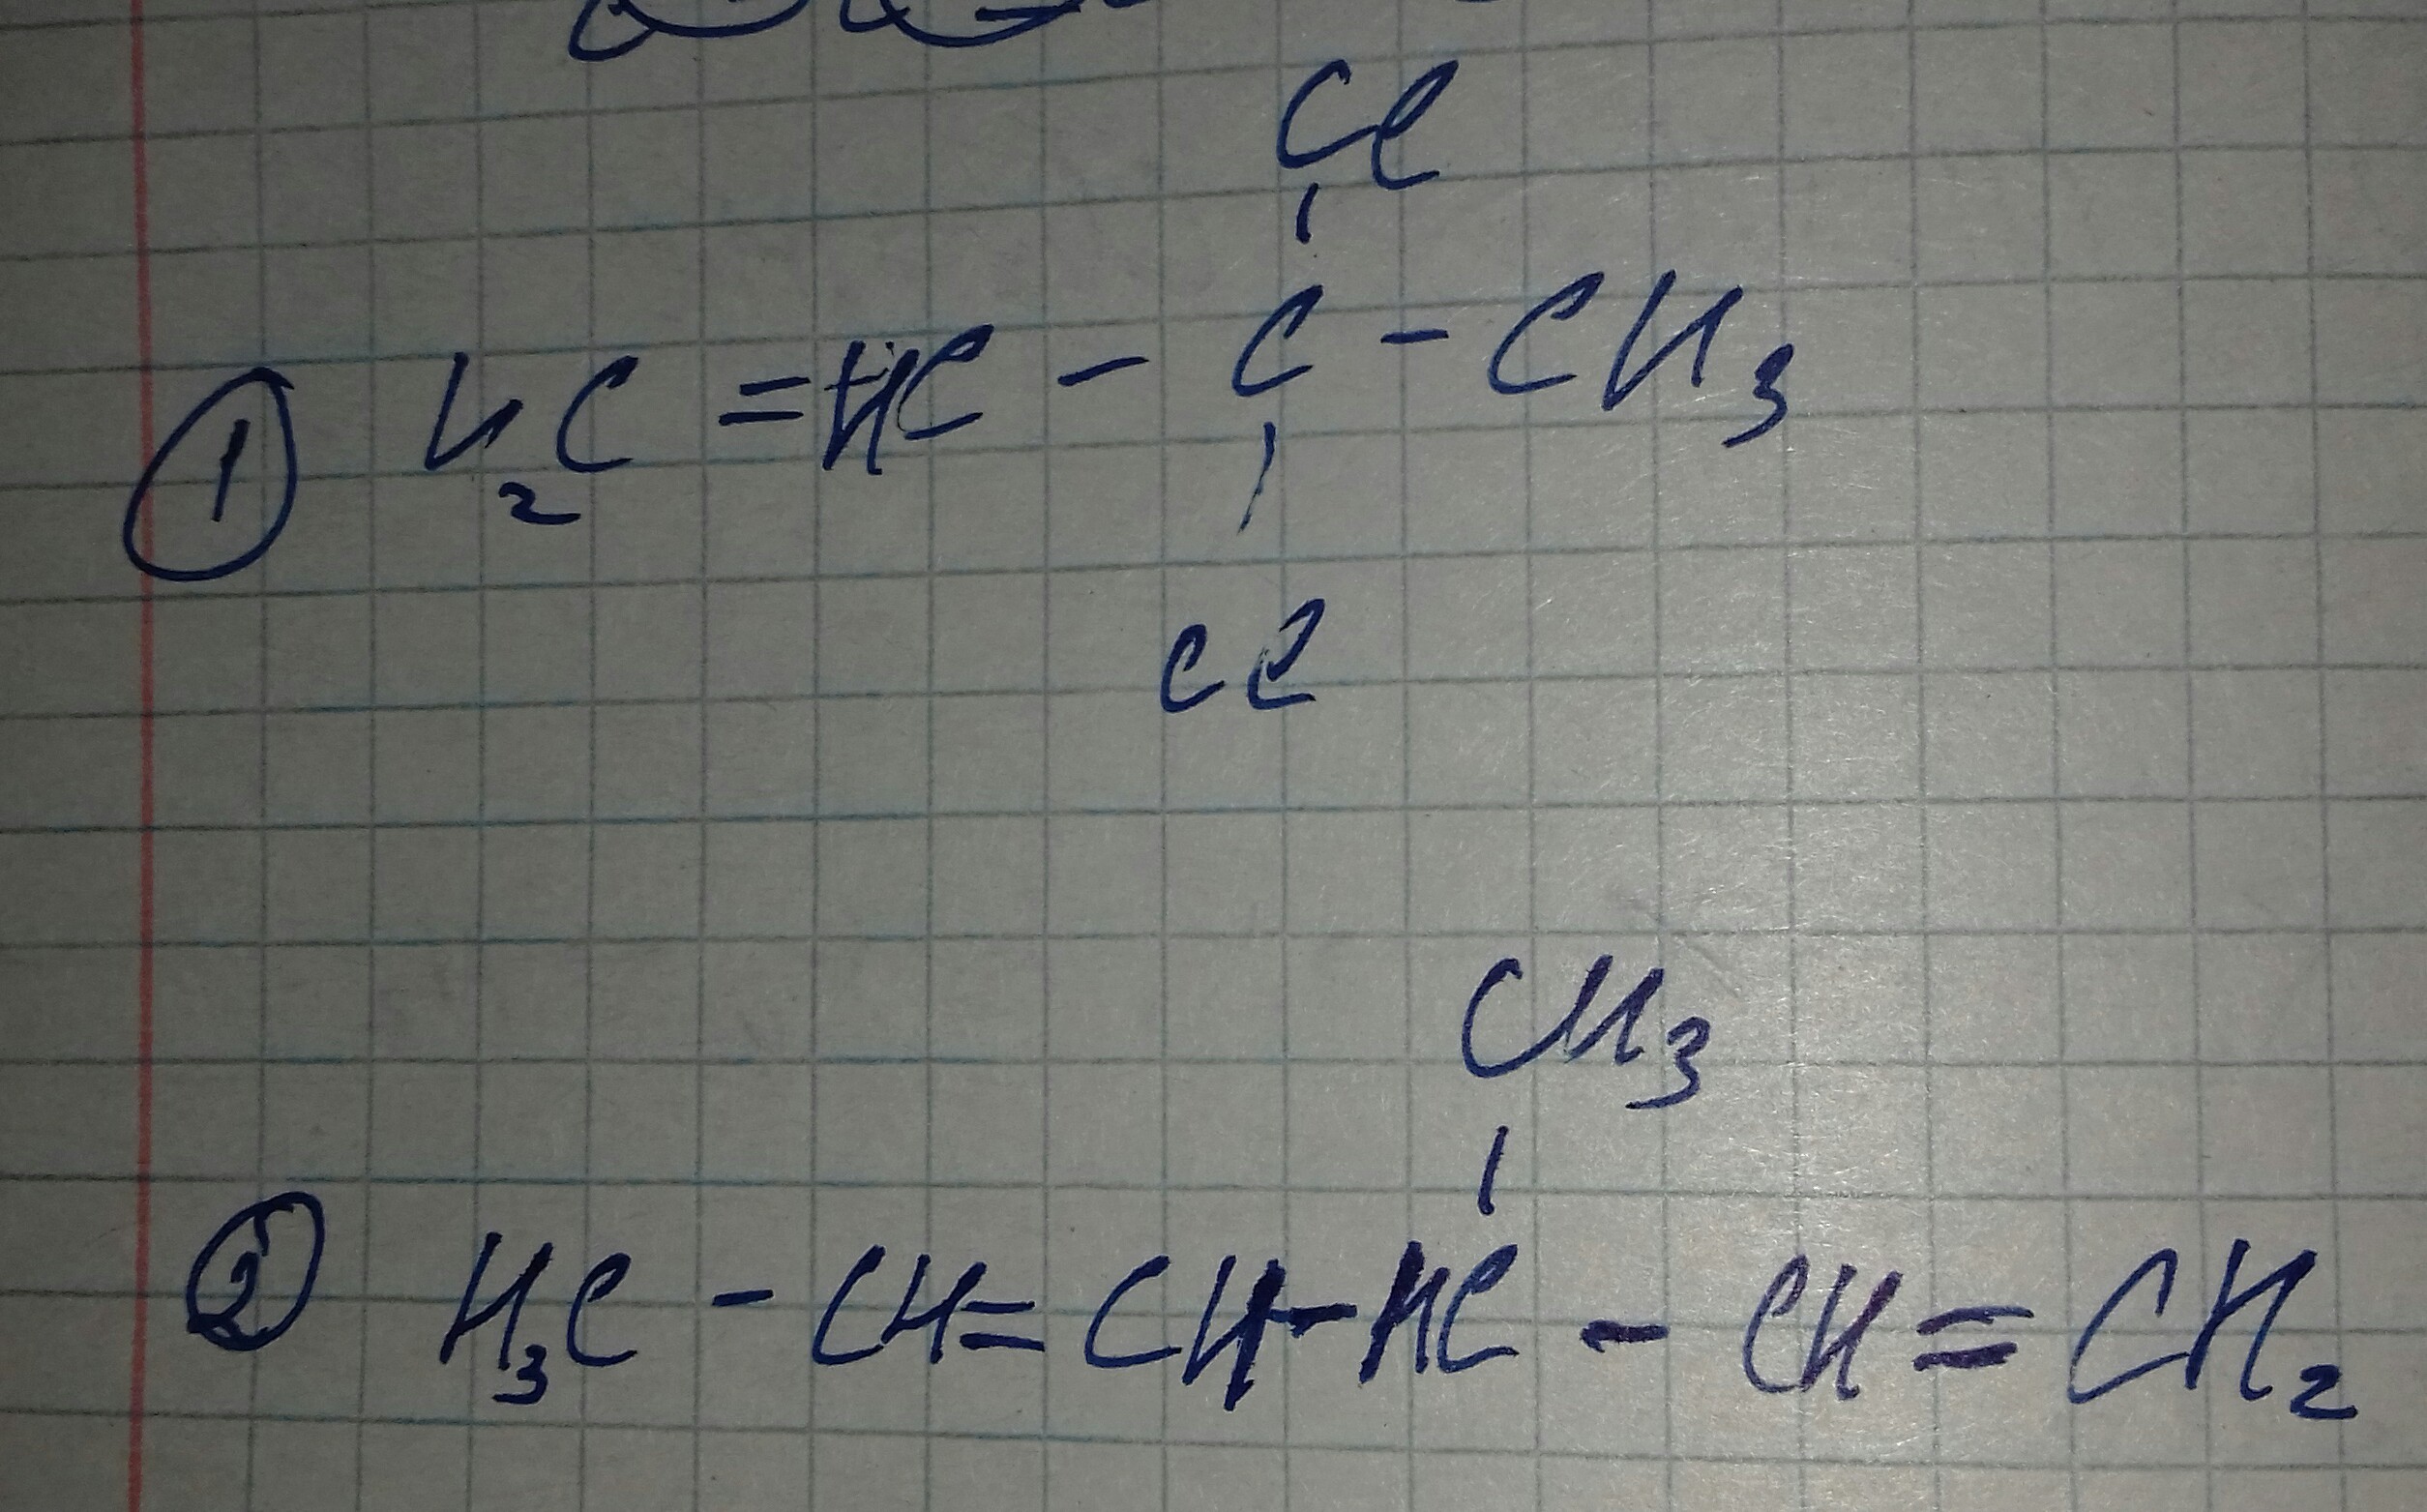 Cl
① H₂C = HC - C - CH₃
Cl
CH₃
② H₃C - CH = CH - HC - CH = CH₂